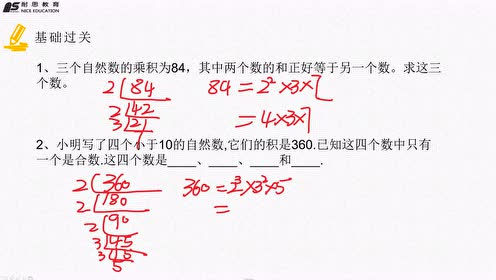 耐思教育
NICE EDUCATION
基础过关
1、三个自然数的乘积为84，其中两个数的和正好等于另一个数。求这三
个数。
2 84 84=2²×3×7
2 42 =4×3×7
3 21
7
2、小明写了四个小于10的自然数,它们的积是360.已知这四个数中只有
一个是合数.这四个数是____、____、____和____.
2 360 360=2³×3²×5
2 180 =
2 90
3 45
3 15
5